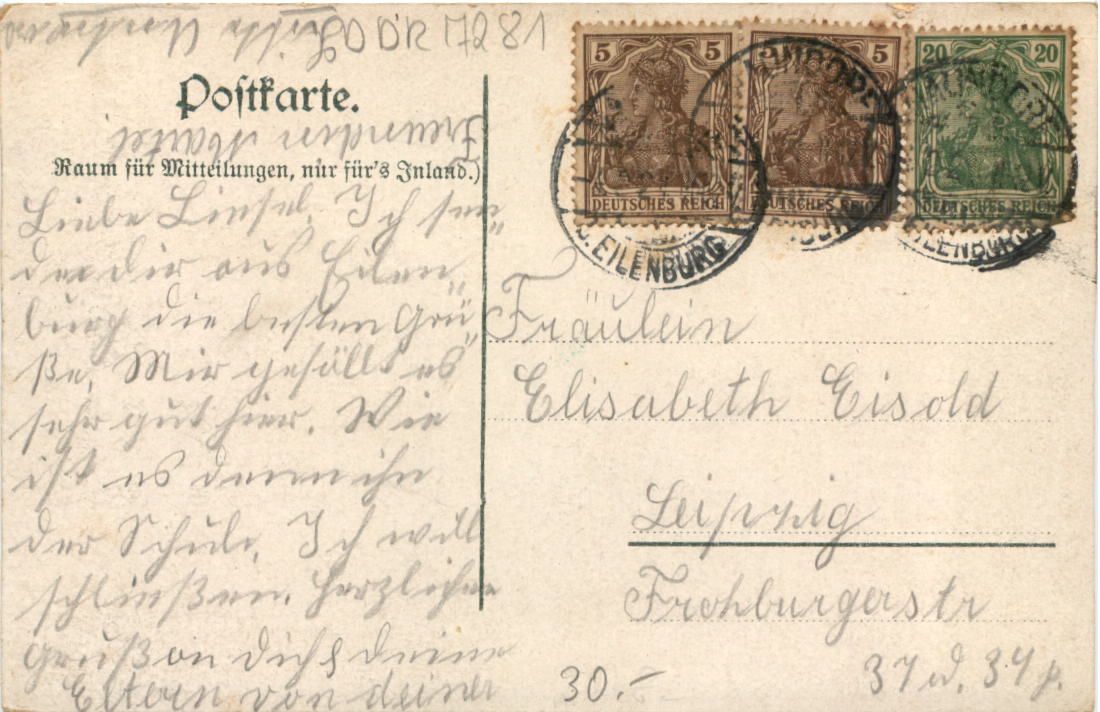 Postkarte.
Raum für Mitteilungen, nur für's Inland.)
Liebe Liesel. Ich sen"
de dir aus Eilen"
burg die besten Grü"
ße. Mir gefällt es
sehr gut hier. Wie
ist es denn ihn
der Schule. Ich will
schließen. Herzlichen
Gruß an dich & deine
Eltern von deiner
Freundin
5 5
DEUTSCHES REICH
5
DEUTSCHES REICH
20 20
DEUTSCHES REICH
B. EILENBURG
EILENBURG
Fräulein
Elisabeth Eisold
Leipzig
Frohburgerstr
30.-